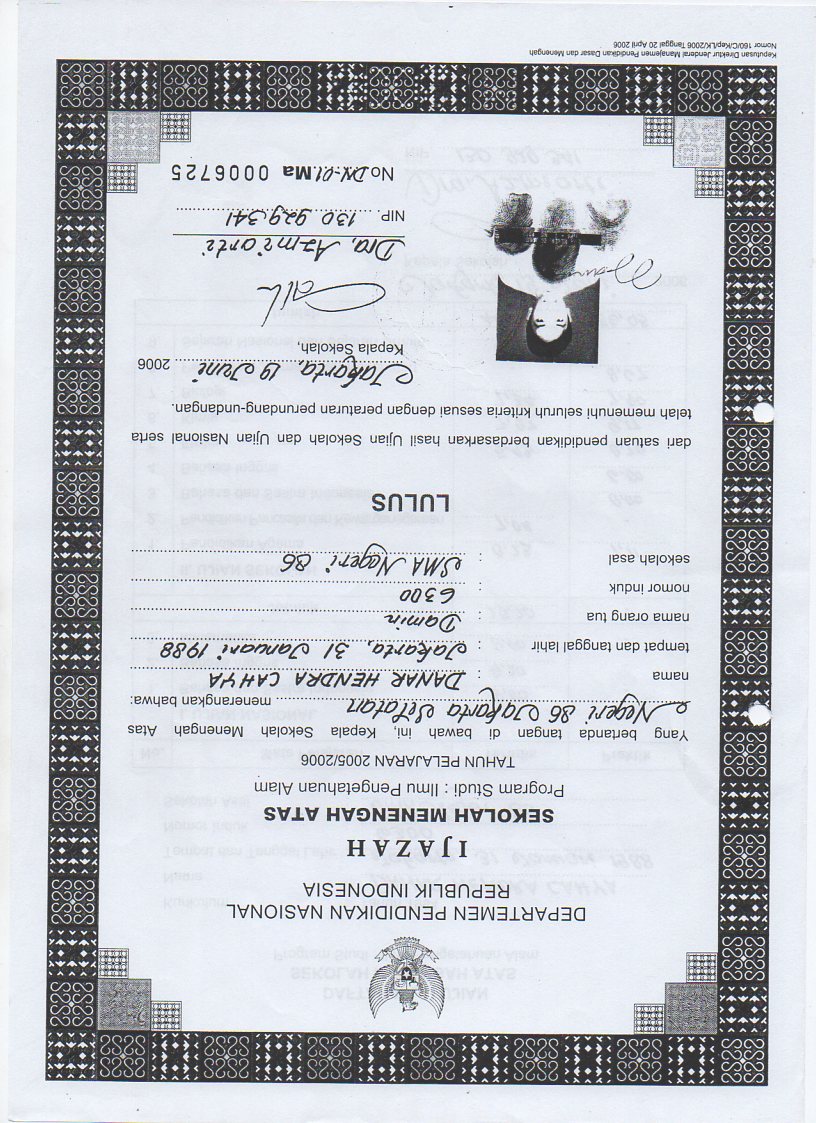 DEPARTEMEN PENDIDIKAN NASIONAL
REPUBLIK INDONESIA
IJAZAH
SEKOLAH MENENGAH ATAS
Program Studi : Ilmu Pengetahuan Alam
TAHUN PELAJARAN 2005/2006
Yang bertanda tangan di bawah ini, Kepala Sekolah Menengah Atas
Negeri 86 Jakarta Selatan menerangkan bahwa:
nama : DANAR HENDRA CAHYA
tempat dan tanggal lahir : Jakarta, 31 Januari 1988
nama orang tua : Damin
nomor induk : 6300
sekolah asal : SMA Negeri 86
LULUS
dari satuan pendidikan berdasarkan hasil Ujian Sekolah dan Ujian Nasional serta
telah memenuhi seluruh kriteria sesuai dengan peraturan perundang-undangan.
Jakarta, 19 Juni 2006
Kepala Sekolah,
Dra. Azmiarti
NIP. 130 929 341
No. DN-01 Ma 0006725
Keputusan Direktur Jenderal Manajemen Pendidikan Dasar dan Menengah
Nomor 160/C/Kep/LK/2006 Tanggal 20 April 2006